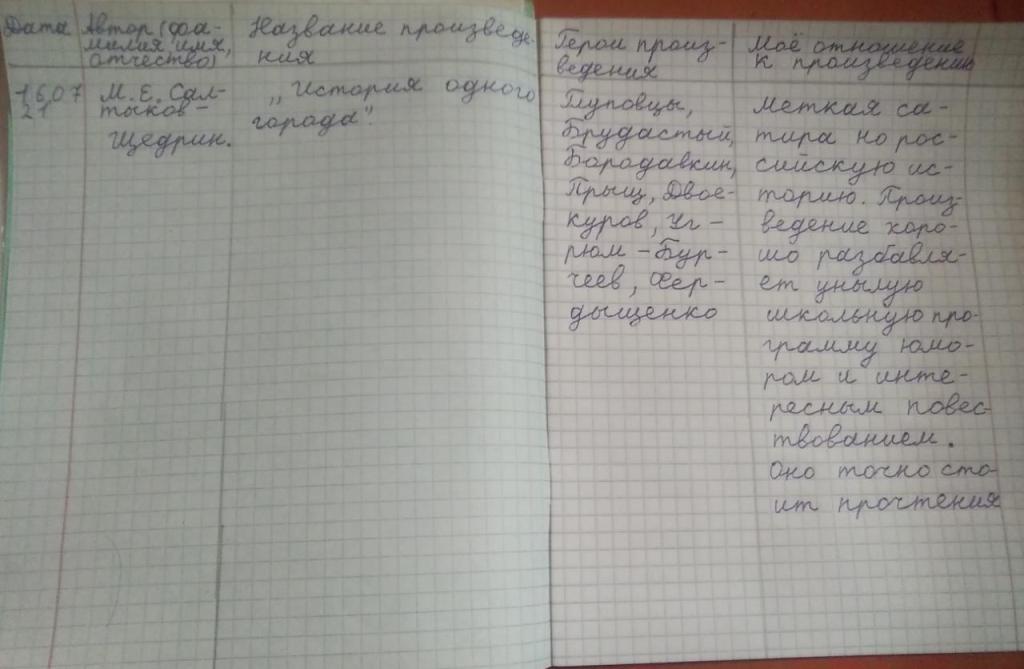 Дата
Автор (фа-
милия имя,
отчество)
Название произведе-
ния
Герои произ-
ведения
Моё отношение
к произведению
16.07
21
М. Е. Сал-
тыков -
Щедрин.
„История одного
города".
Глуповцы,
Брудастый,
Бородавкин,
Прыщ, Двое-
куров, Уг -
рюм - Бур -
чеев, Фер -
дыщенко
Меткая са -
тира но рос -
сийскую ис-
торию. Произ-
ведение хоро-
шо разбавля-
ет унылую
школьную про-
грамму юмо-
ром и инте-
ресным повес
твованием.
Оно точно сто-
ит прочтения